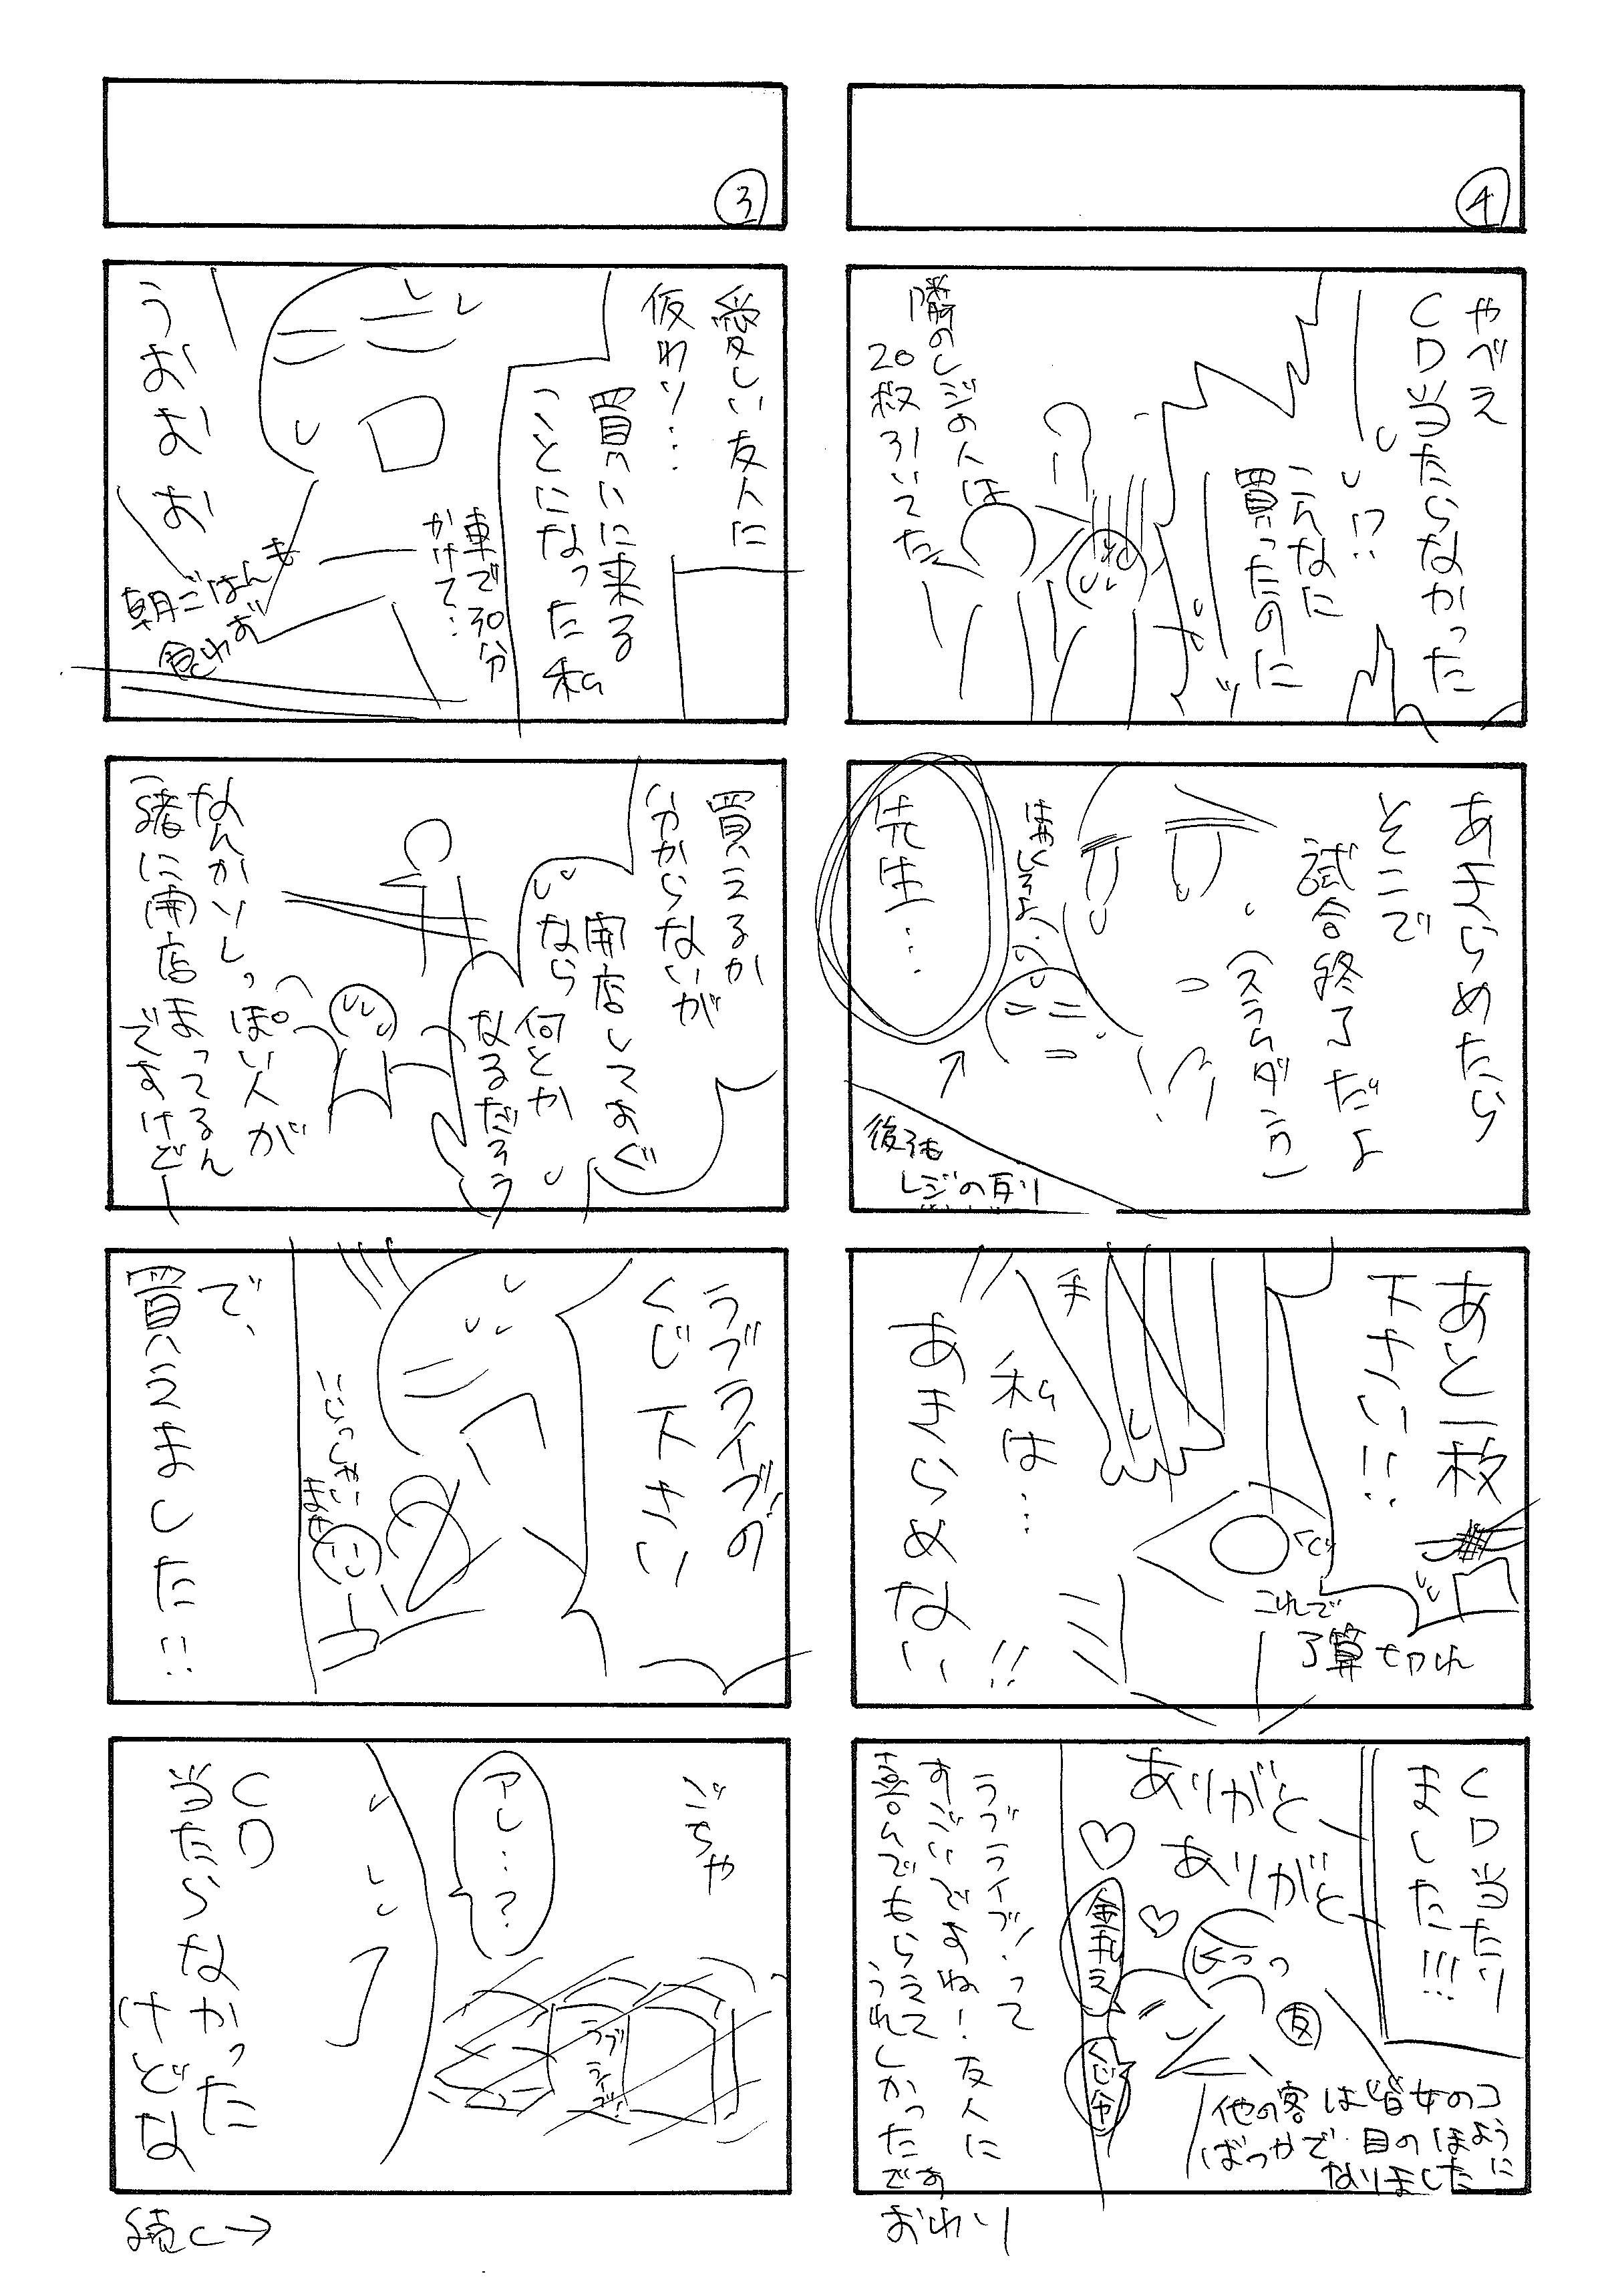 ③
愛しい友人に
代わり…
買いに来る
ことになった私
車で30分
かけて…
うおおお
朝ごはんも
食わず
買えるか
わからないが
開店してすぐ
なら何とか
なるだろう
なんかソレっぽい人が
一緒に開店まってるん
ですけどー
ラブライブ!の
くじ下さい
いらっしゃい
ませ
で、
買えました!!
ごちゃ
アレ…?
ラブ
ライブ!
CD
当たらなかった
けどな
続く→
④
やべえ
CD当たらなかった
!?
こんなに
買ったのに
ッ
隣のレジの人は
20枚引いてた
あきらめたら
そこで
試合終了だよ
(スラムダンク)
はやくしろよ
先生…
後ろも
レジの
あと一枚
下さい!!
手
これで
予算切れ
私は…
あきらめない!!
CD当たり
ました!!!
ありがと
ありがと
友
他の客は皆女のコ
ばっかで目のほように
なりました
ラブライブ!って
すごいですね!友人に
喜んでもらえて
うれしかった
です
おわり